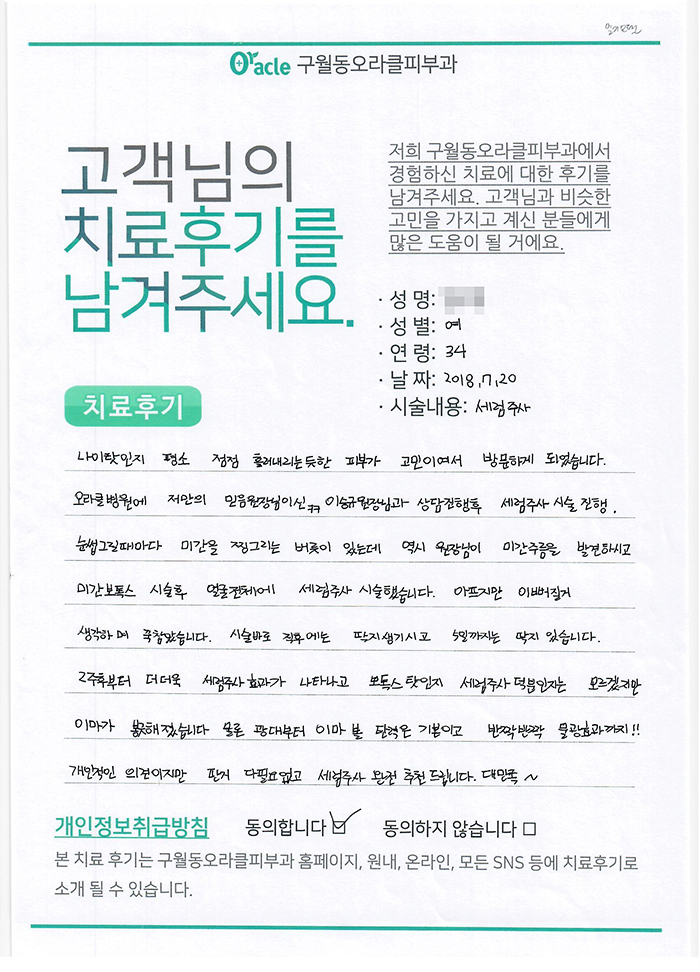 Oracle 구월동오라클피부과
고객님의
치료후기를
남겨주세요.
저희 구월동오라클피부과에서
경험하신 치료에 대한 후기를
남겨주세요. 고객님과 비슷한
고민을 가지고 계신 분들에게
많은 도움이 될 거에요.
· 성 명:
· 성 별: 여
· 연 령: 34
· 날 짜: 2018,7,20
· 시술내용: 세럼주사
치료후기
나이탓인지 평소 점점 흘러내리는듯한 피부가 고민이여서 방문하게 되었습니다.
오라클병원에 저만의 믿음원장님이신ㅋㅋ 이승규원장님과 상담진행후 세럼주사 시술진행.
눈썹그릴때마다 미간을 찡그리는 버릇이 있는데 역시 원장님이 미간주름을 발견하시고
미간보톡스 시술후 얼굴전체에 세럼주사 시술했습니다. 아프지만 이뻐질거
생각하며 꾹참았습니다. 시술바로 직후에는 딱지생기시고 5일까지는 딱지 있습니다.
2주후부터 더더욱 세럼주사효과가 나타나고 보톡스 탓인지 세럼주사 덕분인지는 모르겠지만
이마가 봉긋해졌습니다 물론 광대부터 이마 볼 탄력은 기본이고 반짝반짝 물광효과까지!!
개인적인 의견이지만 딴거 다필요없고 세럼주사 완전 추천드립니다. 대만족~
개인정보취급방침 동의합니다 ☑ 동의하지 않습니다 □
본 치료 후기는 구월동오라클피부과 홈페이지, 원내, 온라인, 모든 SNS 등에 치료후기로
소개 될 수 있습니다.